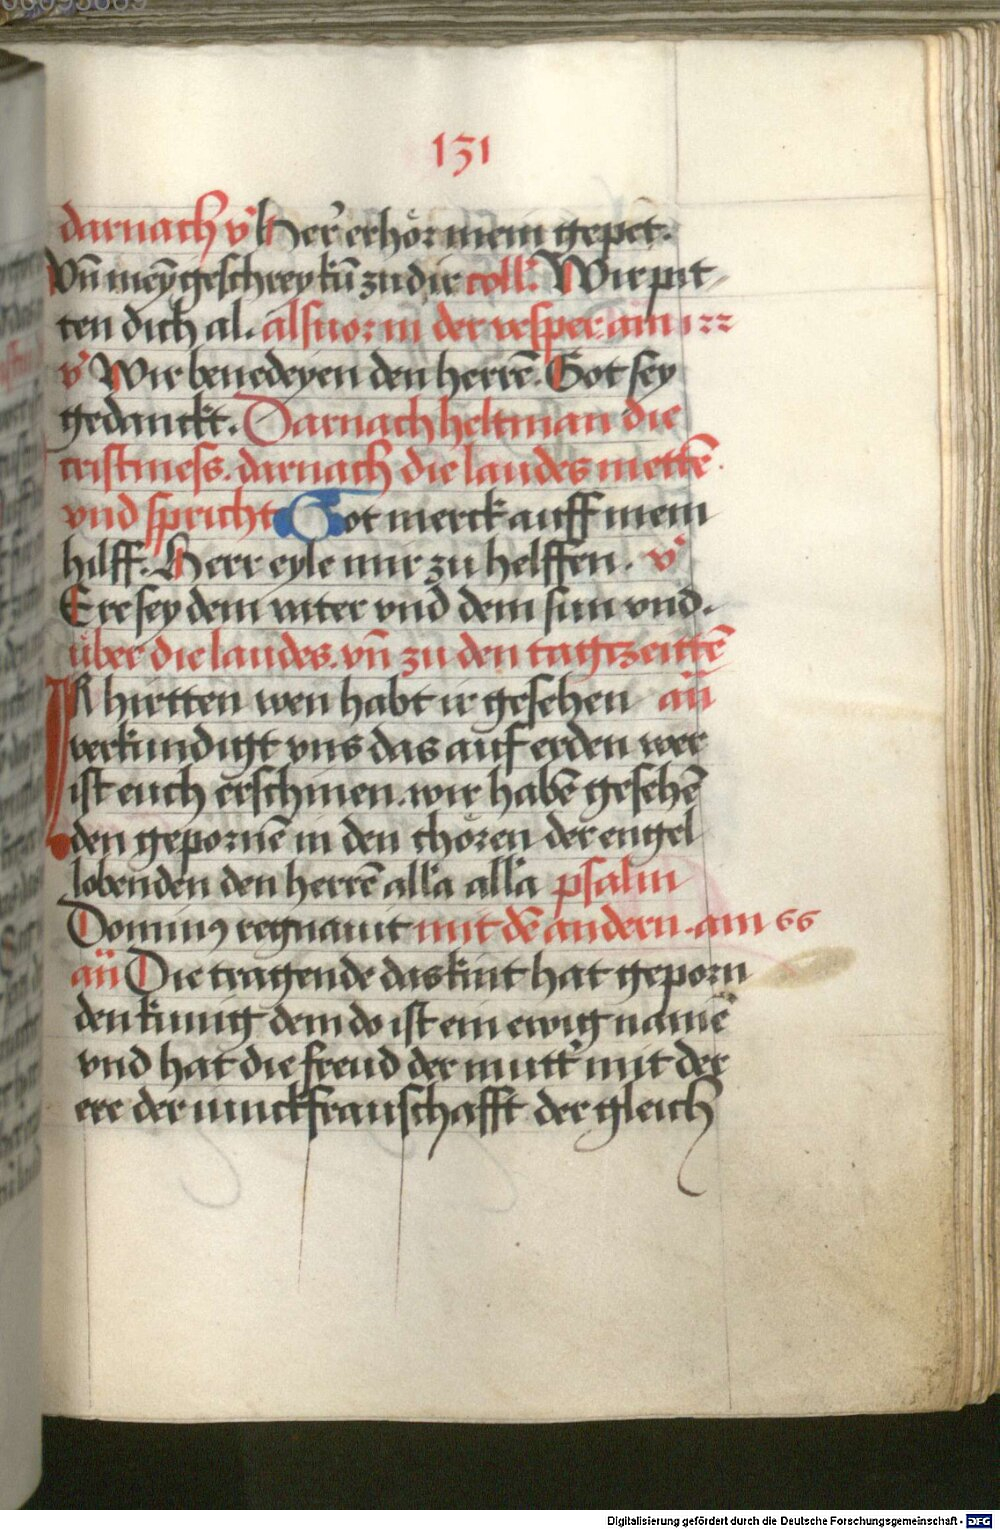 131
darnach v̓ Her̓ erhör mein gepet.
Vn̄ mey̅ geschrey ku̅ zu dir coll̓. Wir pit-
ten dich al. als uor in der vesper am 122
v̓ Wir benedeyen den herre̅. Got sey
gedanckt. Darnach helt man die
cristmess. darnach die laudes mette̅.
vnd spricht Got merck auff mein
hilff. Herr eyle mir zu helffen. v̓
Ere sey dem vater vnd dem sun vnd.
über die laudes. vn̄ zu den tagzeitte̅
IR hirtten wen habt ir gesehen an̄
verkundigt vns das auf erden wer
ist euch erschinen. wir habe̅ gesehe̅
den geporne̅ in den chören der engel
lobenden den herre̅ all̓a all̓a psalm
Dominꝰ regnauit mit de̅ andern. am 66
an̄ Die tragende das kint hat geporn
den kunig dem do ist ein ewig name̅
vnd hat die freud der mutt̓ mit der
ere der iunckfrauschafft der gleich
Digitalisierung gefördert durch die Deutsche Forschungsgemeinschaft - DFG